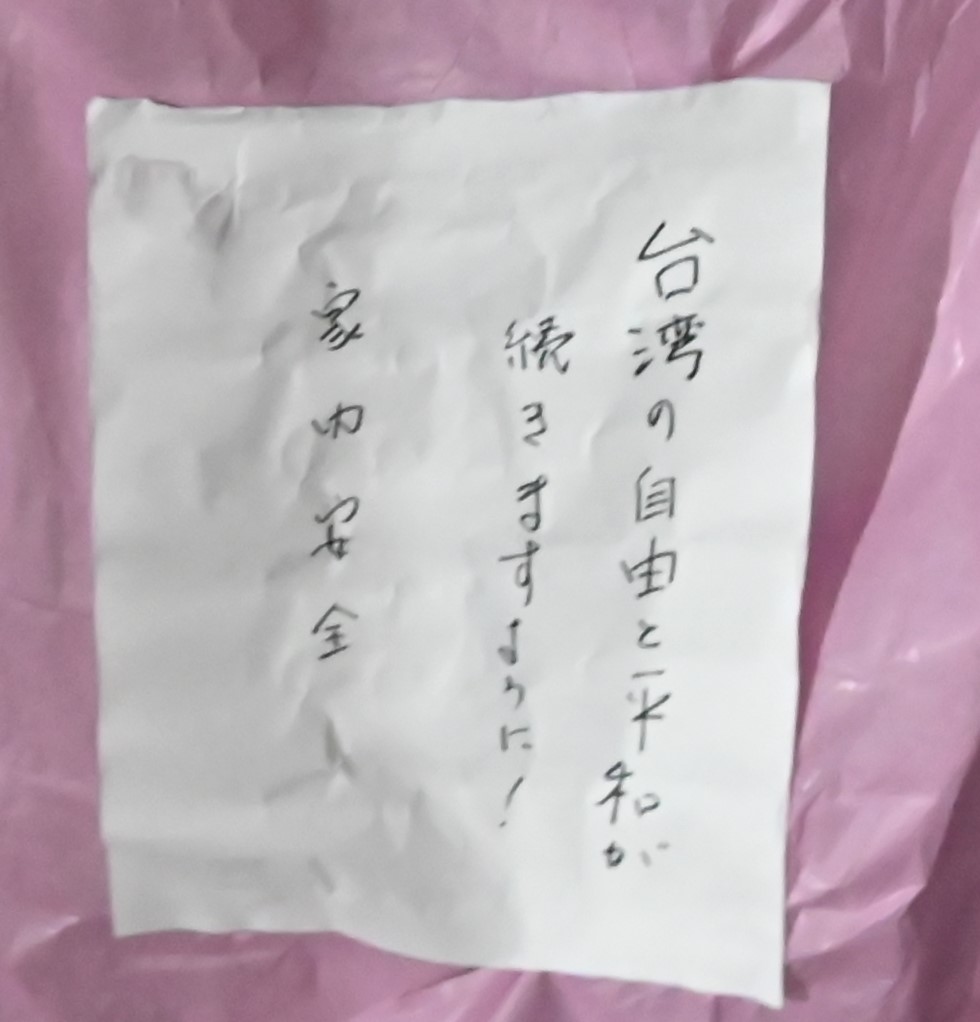 台湾の自由と平和が
続きますように!
家内安全